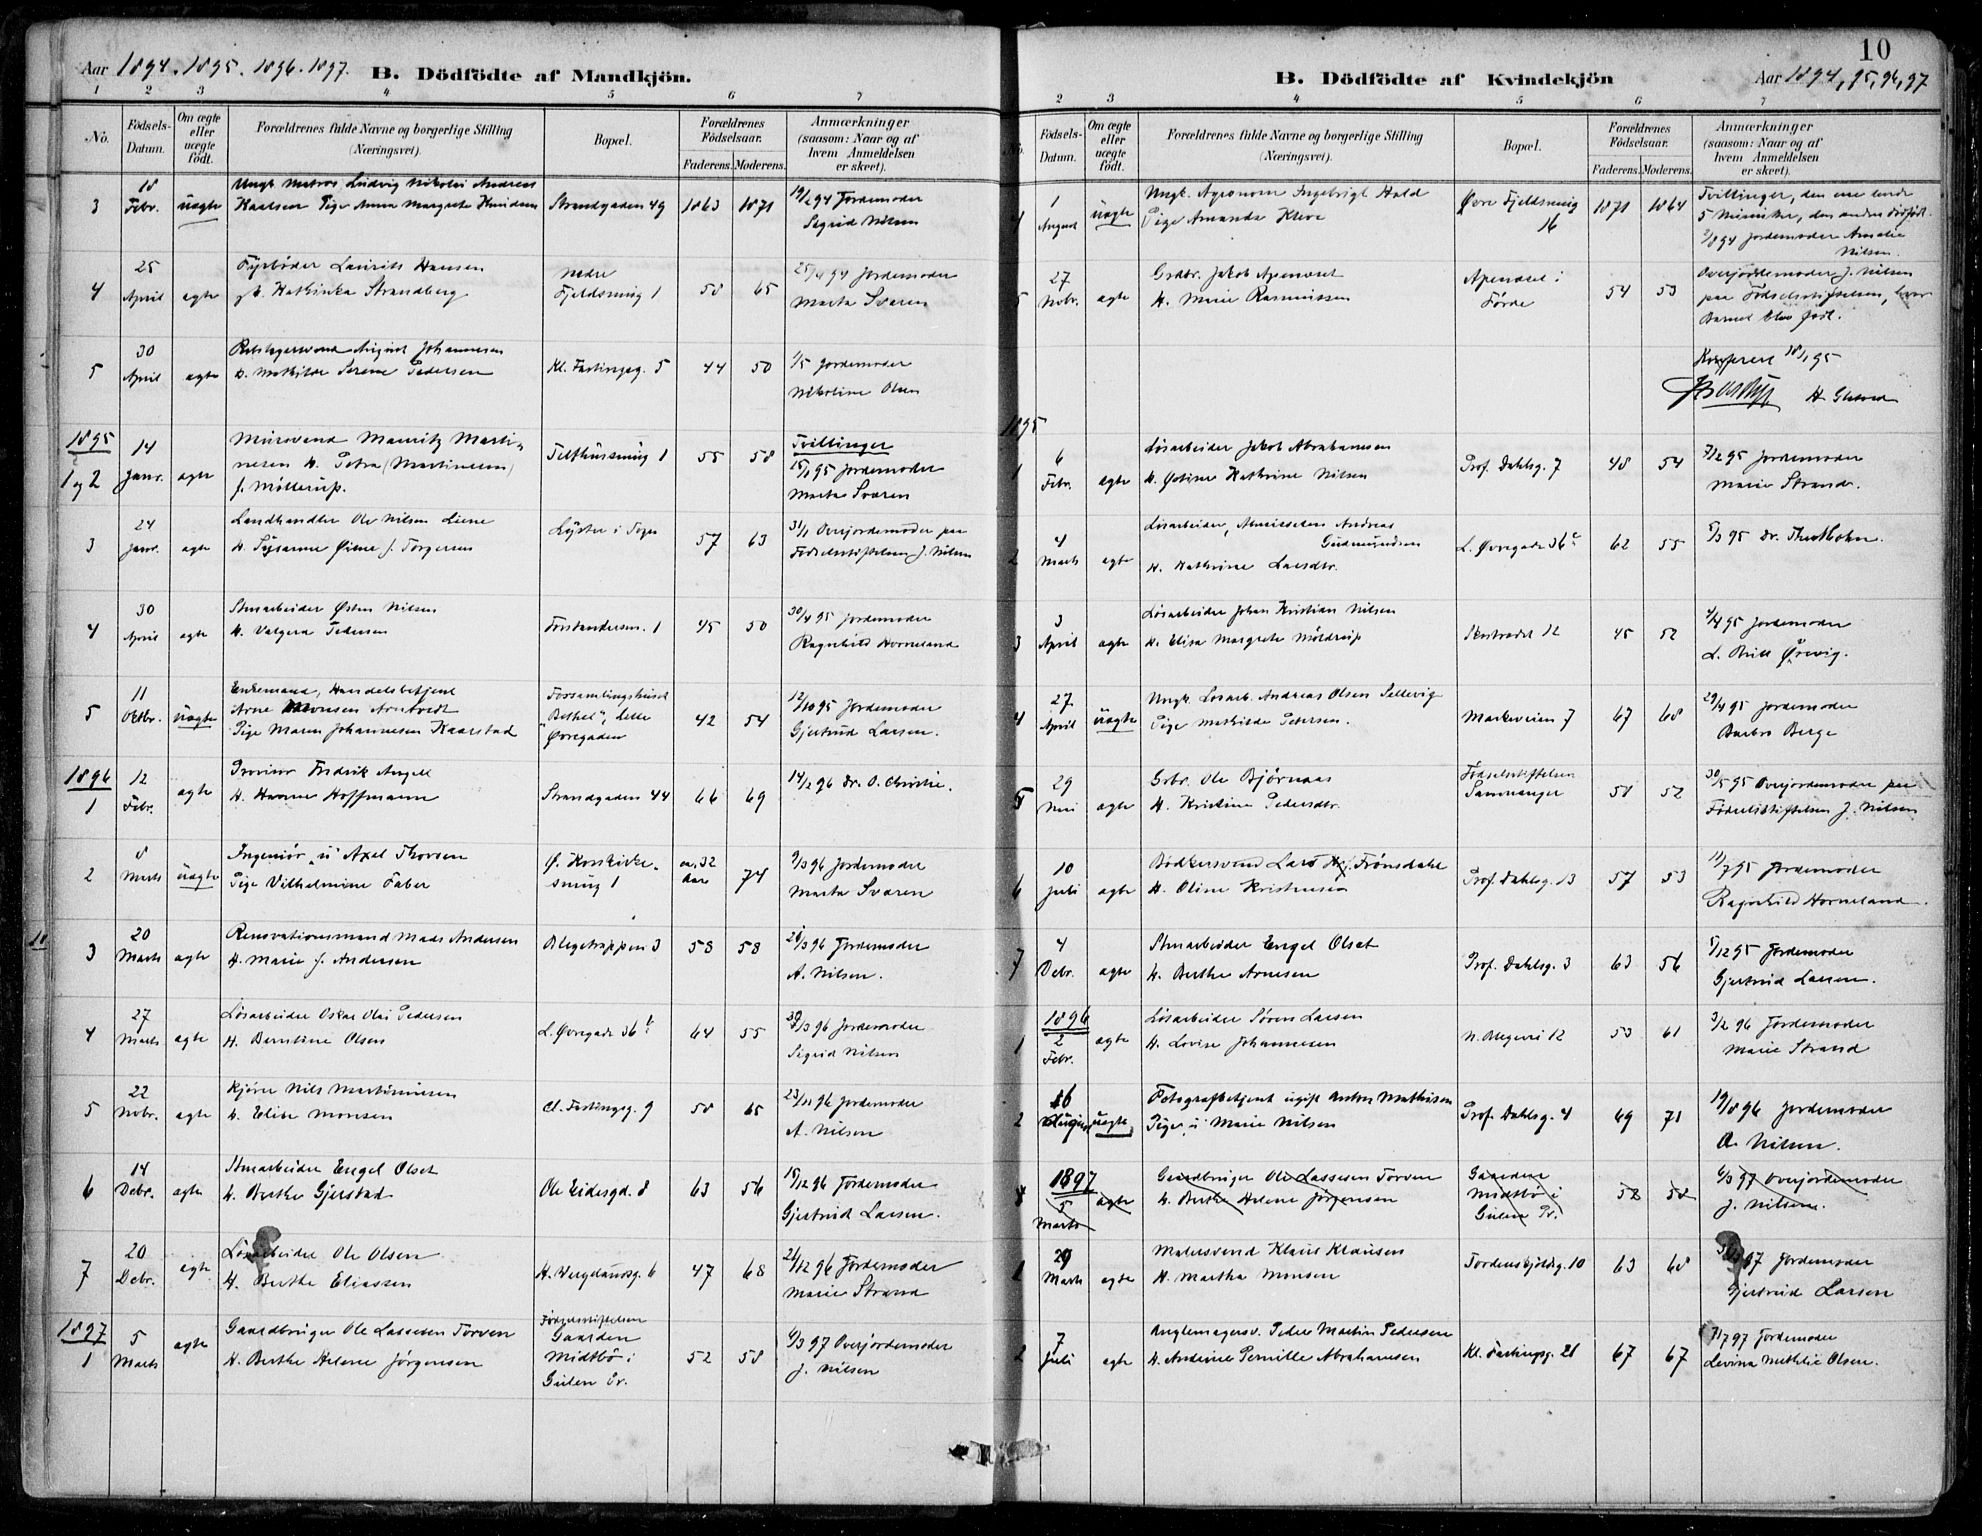 Aar 1894. 1895. 1896. 1897. B. Dödfödte af Mandkjön.
1 2 3 4 5 6 7
No. Födsels-Datum. Om ægte eller uægte födt. Forældrenes fulde Navne og borgerlige Stilling (Næringsvei). Bopæl. Forældrenes Födselsaar. Faderens. Moderens. Anmærkninger (saasom: Naar og af hvem Anmeldelsen er skeet).
3 18 Febr. uægte Ungk. Matros Ludvig Nikolai Andreas
Karlsen Pige Anna Margrete Knudsen Strandgaden 49 1863 1871 19/2 94 Jordemoder
Sigrid Nilsen
4 25 April ægte Fyrböder Laurits Hansen
Kathinka Strandberg nedre
Fjeldsmug 1 58 65 25/4 94 Jordemoder
Marta Svaren
5 30 April ægte Rebslagersvend August Johannesen
H. Mathilde Serene Pedersen Kl. Fastingsg. 5 44 50 1/5 Jordemoder
Nikoline Olsen
1895
1 og 2 14 Janr. ægte Mursvend Mauritz Marti-
nesen H. Petra (Martinesen)
f. Möllerup. Telthussmug 1 55 58 Tvillinger
15/1 95 Jordemoder
Marta Svaren
3 24 Janr. ægte Landhandler Ole Nilsen Liene
H. f. Torgersen Lyster i Sogn 57 63 31/1 Overjordemoder paa
Födselsstiftelsen J. Nilsen
4 30 April ægte Stenarbeider Östen Nilsen
H. Valgera Pedersen Forstandersm. 1 45 50 30/4 95 Jordemoder
Ragnhild Horneland
5 11 Oktbr. uægte Enkemand, Handelsbetjent
Arne Monsen Arntvedt
Pige Maren Johannesen Kaarstad Forsamlingshuset
"Bethel", Lille
Øvregaden 42 54 12/10 95 Jordemoder
Gjertrud Larsen.
1896
1 12 Febr. ægte Provisor Fredrik Angell
H. Hanna Hoffmann Strandgaden 44 66 69 14/2 96 Dr. O. Christie.
2 8 Marts uægte Ingeniör, u Axel Thorsen
Pige Vilhelmine Faber Ø. Korskirke-
smug 1 ca. 32
Aar 74 9/3 96 Jordemoder
Marta Svaren
3 20 Marts ægte Renovationsmand Mads Andersen
H. Marie f. Andersen Blegetrappen 3 58 58 21/3 96 Jordemoder
A. Nilsen.
4 27 Marts ægte Lösarbeider Oskar Olai Pedersen
H. Berntine Olsen L. Øvregade 36 b 64 55 /3 96 Jordemoder
Sigrid Nilsen
5 22 Novbr. ægte Kjörer Nils Martiniusen
H. Elise Monsen Kl. Fastingsg. 9 58 65 23/11 96 Jordemoder
A. Nilsen
6 14 Debr. ægte Stenarbeider Engel Olset
H. Berthe Gjerstad Ole Eidesgd. 8 63 56 15/12 96 Jordemoder
Gjertrud Larsen.
7 20 Debr. ægte Lösarbeider Ole Olsen
H. Berthe Eliassen H. Hergdansg. 6 47 68 21/12 96 Jordemoder
Marie Strand
1897
1 5 Marts ægte Gaardbruger Ole Lassesen Torven
H. Berthe Helene Jörgensen Födselsstiftelsen
Gaarden
Midtbö i
Gulen Pr. 52 58 6/3 97 Overjordemoder
J. Nilsen
B. Dödfödte af Kvindekjön Aar 1894, 95, 96, 97
10
2 3 4 5 6 7
No. Födsels-Datum. Om ægte eller uægte födt. Forældrenes fulde Navne og borgerlige Stilling (Næringsvei). Bopæl. Forældrenes Födselsaar. Faderens. Moderens. Anmærkninger (saasom: Naar og af hvem Anmeldelsen er skeet).
4 1 August uægte Ungk. Agronom Ingebrigt Hald
Pige Amanda Kleve Øvre Fjeldsmug
16 1871 1864 Tvillinger, den ene levde
5 Minuter, den anden dödfödt.
2/8 94 Jordemoder Amalie
Nilsen.
5 27 Novbr. ægte Grdbr. Jakob Apeneset
H. Marie Rasmussen i
Förde 54 53 Overjordemoder J. Nilsen
paa Födselsstiftelsen, hvor
Barnet blev födt.
Konfereret 18/1 95
1895
1 6 Febr. ægte Lösarbeider Jakob Abrahamsen
H. Østine Kathrine Nilsen Prof. Dahlsg. 7 48 54 7/2 95 Jordemoder
Marie Strand.
2 4 Marts ægte Lösarbeider, Andreas
Gudmundsen
H. Kathrine Larsdtr. L. Øvregade 36 62 55 5/3 95 Dr.
3 3 April ægte Lösarbeider Johan Kristian Nilsen
H. Elisa Margrete Möldrup Skostredet 12 45 52 4/4 95 Jordemoder
L. Brill Ørevig.
4 27 April uægte Ungk. Lösarb. Andreas Olsen Sellevig
Pige Mathilde Petersen. Markeveien 7 67 68 29/4 95 Jordemoder
Barbro Berge
5 29 Mai ægte Grbr. Ole Björnaas
H. Kristine Pedersdtr. Födselsstiftelsen
Samnanger 58 52 30/5 95 Overjordemoder paa
Födselsstiftelsen J. Nilsen
6 10 Juli ægte Bödkersvend Lars Frönsdahl
H. Oline Kristensen Prof. Dahlsg. 13 57 53 11/7 95 Jordemoder
Ragnhild Horneland.
7 4 Debr. ægte Stenarbeider Engel Olset
H. Berthe Arnesen Prof. Dahlsg. 3 63 56 5/12 95 Jordemoder
Gjertrud Larsen.
1896
1 2 Febr. ægte Lösarbeider Sören Larsen
H. Lovise Johannesen N. Blegevei 12 53 61 3/2 96 Jordemoder
Marie Strand
2 16 August uægte Fotografbetjent ugift Anton Mathisen
Pige, u Marie Nilsen Prof. Dahlsg. 4 69 71 19/8 96 Jordemoder
A. Nilsen.
1897
5 Marts ægte Gaardbruger Ole Lassesen Torven
H. Berthe Helene Jörgensen Gaarden
Midtbö i
Gulen Pr. 52 58 6/3 97 Overjordemoder
J. Nilsen.
1 29 Marts ægte Malersvend Klaus Klausen
H. Martha Monsen Tordenskjoldsg. 10 63 68 97 Jordemoder
Gjertrud Larsen
2 7 Juli ægte Anglemagersv. Peder Martin Pedersen
H. Andrine Pernille Abrahamsen Kl. Fastingsg. 21 67 67 7/7 97 Jordemoder
Levina Mathilie Olsen.